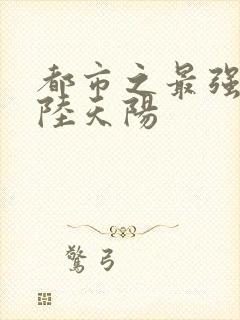 都市之最强
陸天陽
驚弓